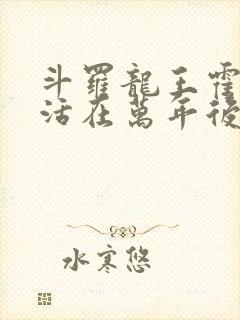 斗羅龍王霍
活在萬年後
水寒悠